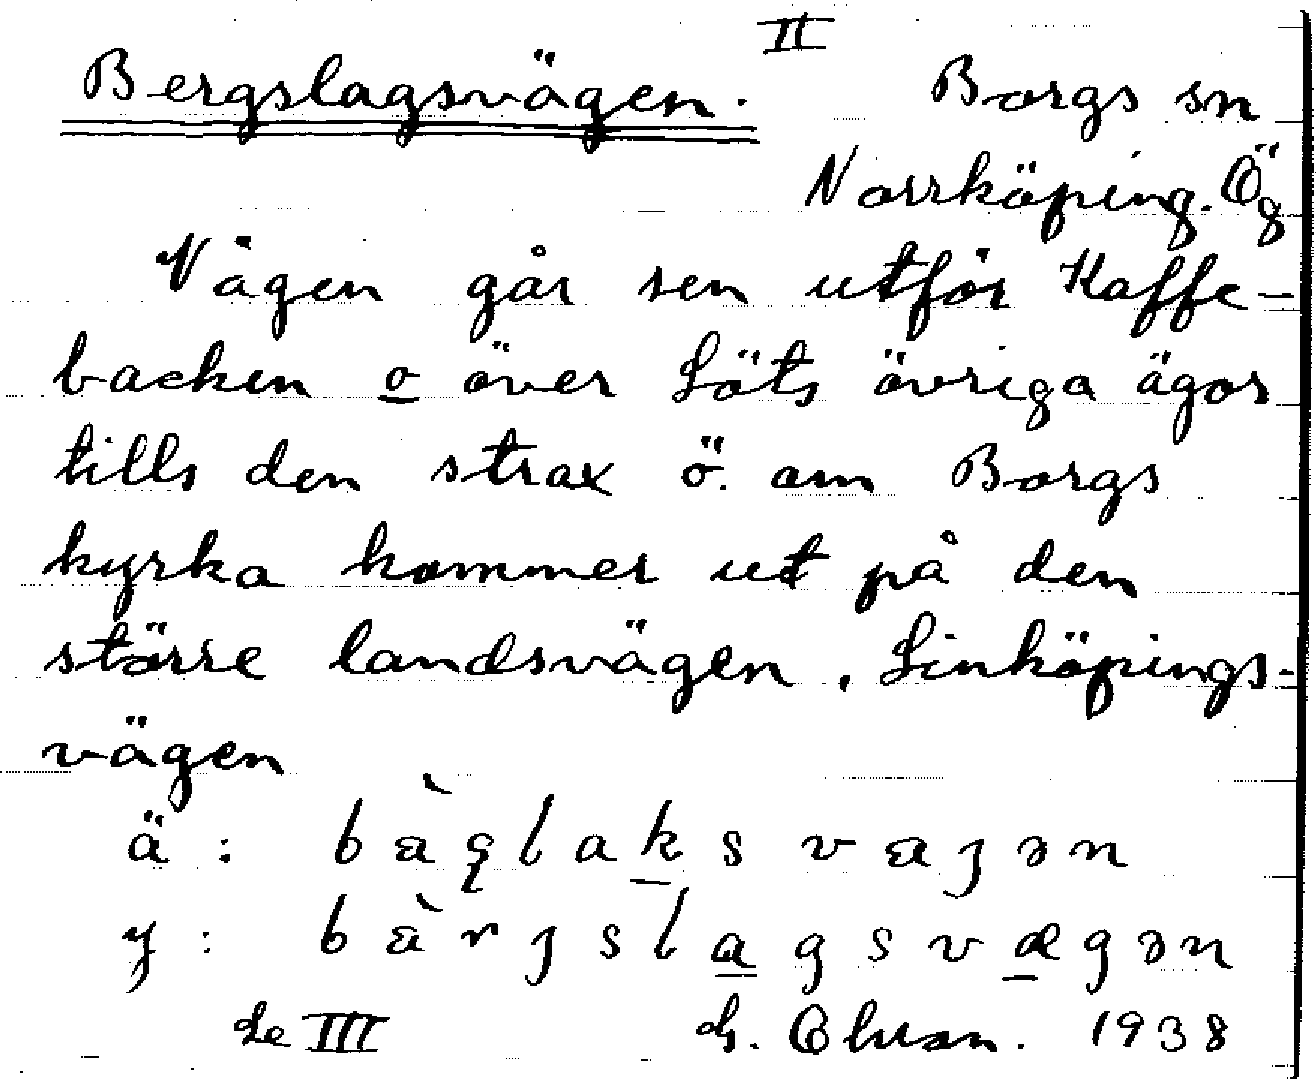 II
Bergslagsvägen. Borgs sn
Norrköping. Ög
Vägen går sen utför Kaffe-
backen o över Löts övriga ägor
tills den strax ö. om Borgs
kyrka kommer ut på den
större landsvägen, Linköpings-
vägen
ä: bæ̀ʂlaks væȷən
y: bæ̀rȷslagsvægən
se III 1938